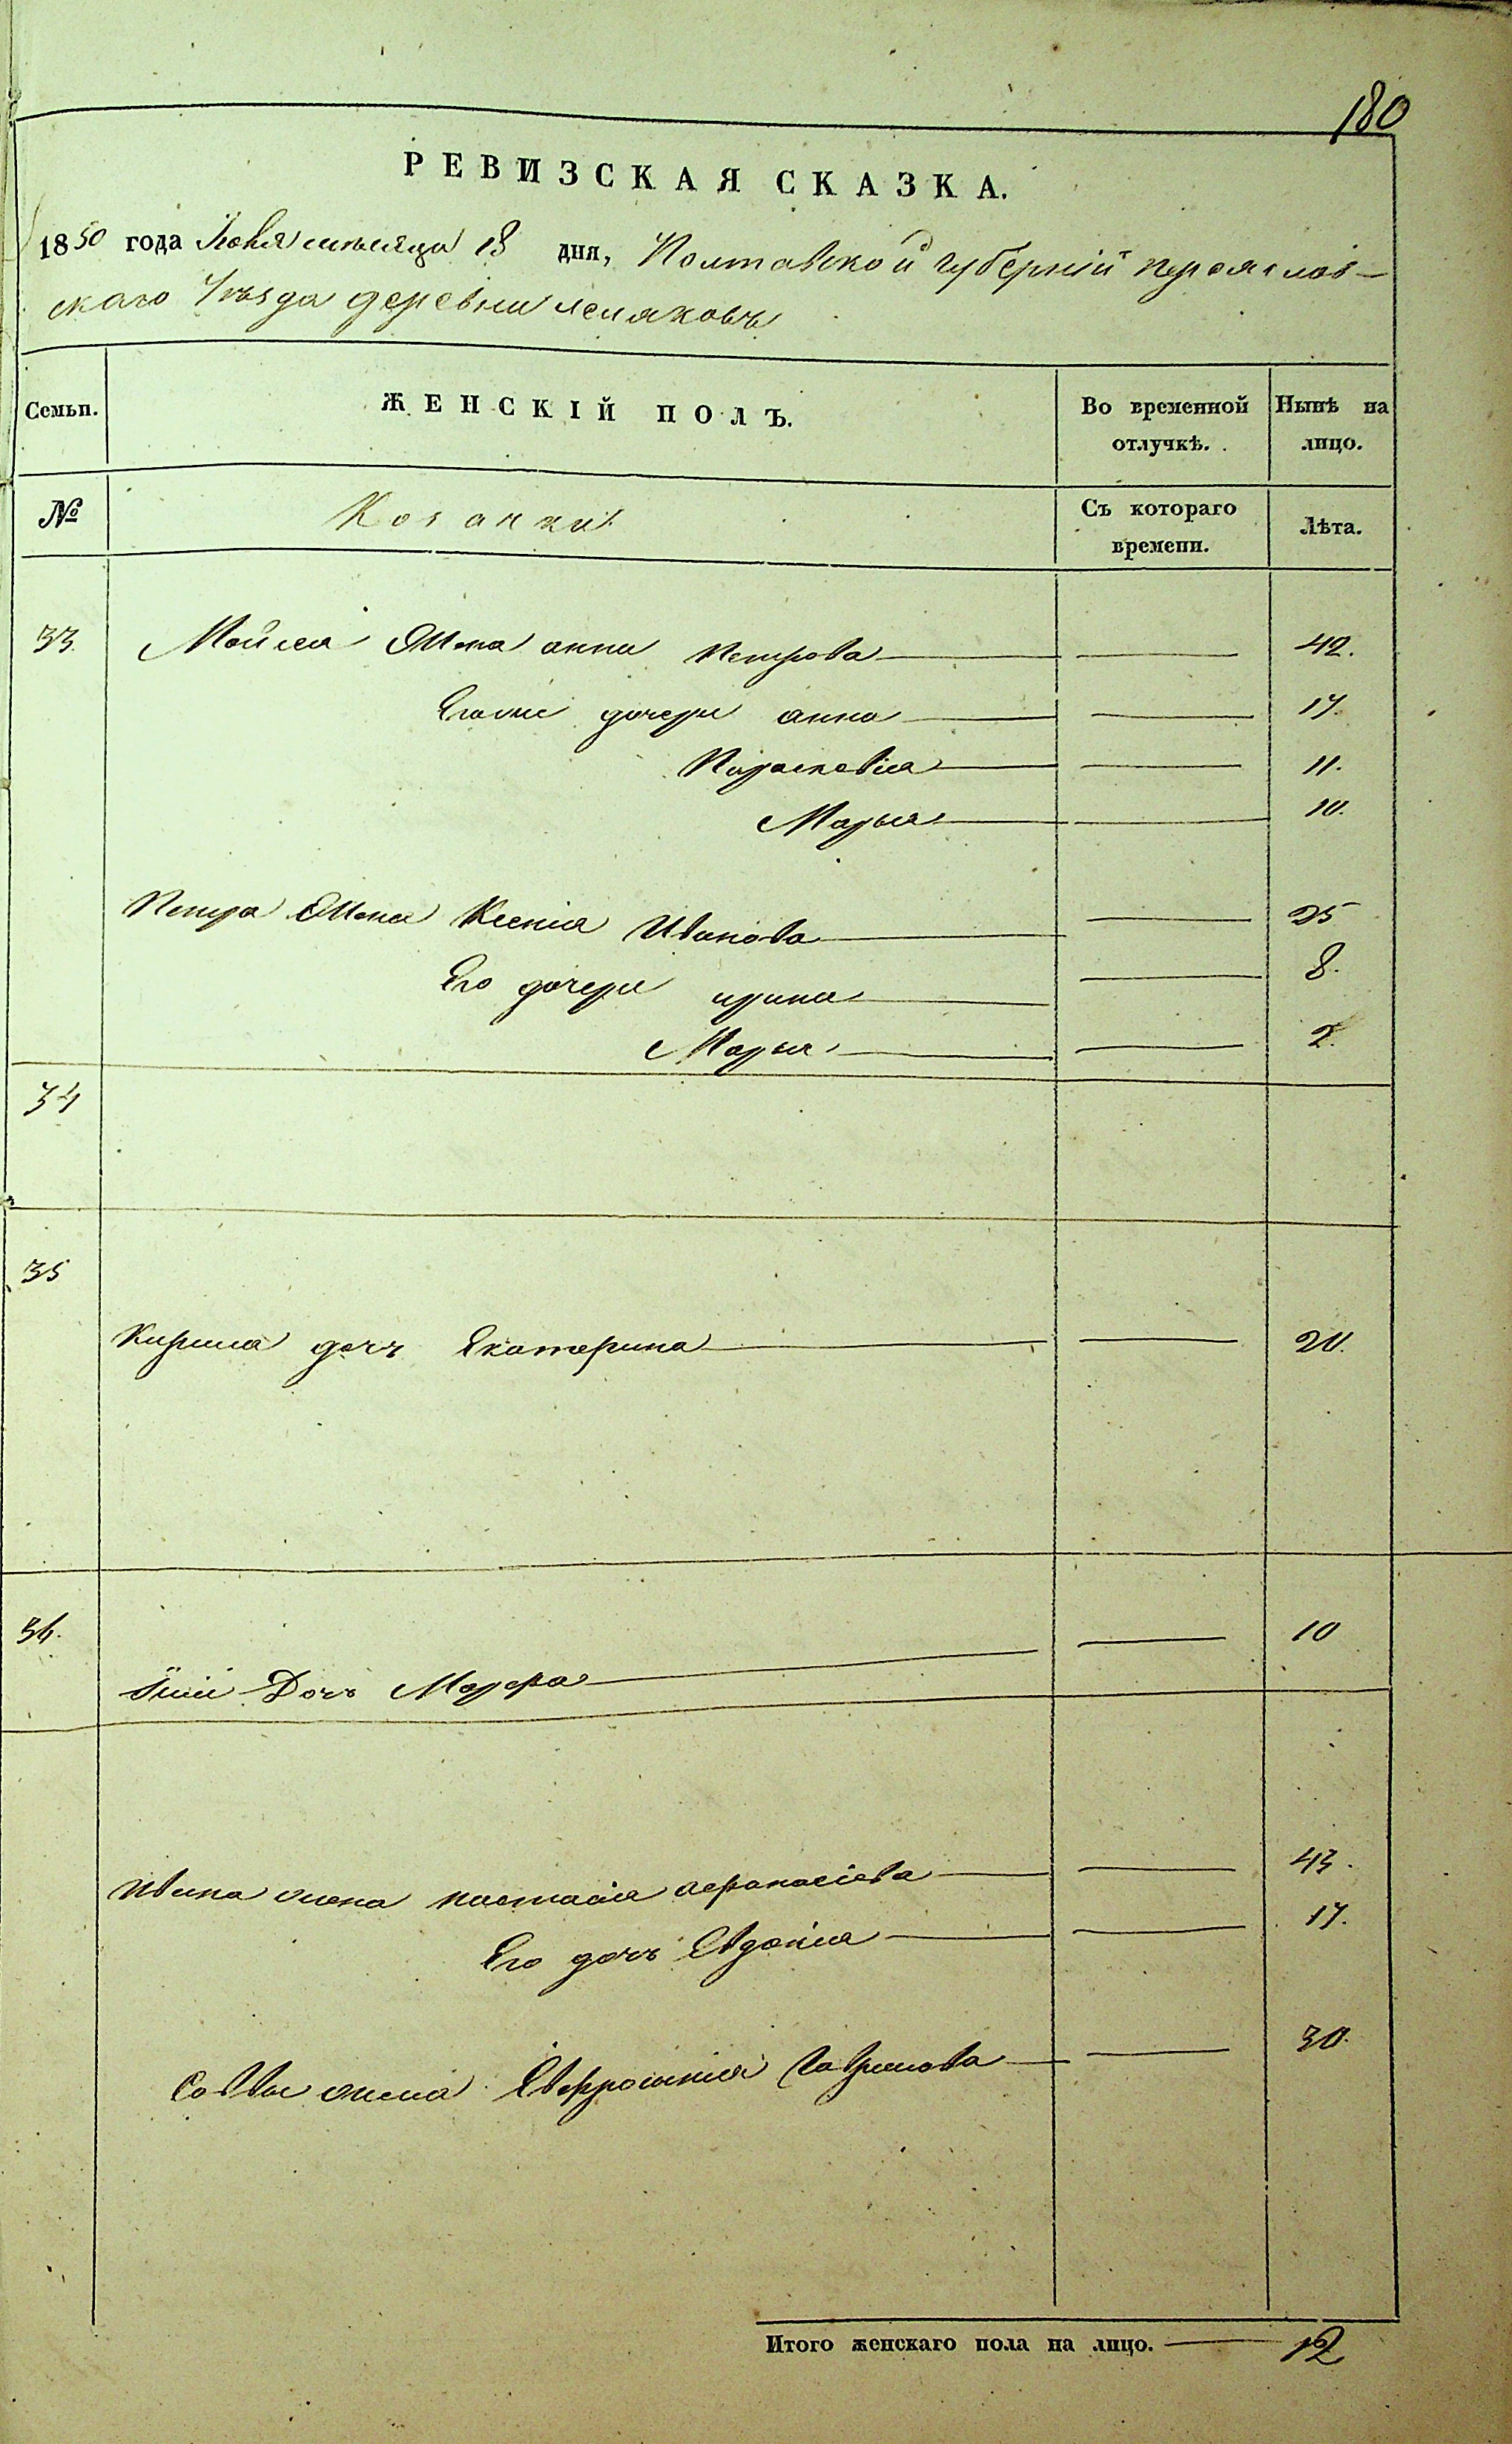 180
РЕВИЗСКАЯ СКАЗКА.
1850 года месяца 18 дня, Полтавской губерніи переяслов-
скаго Уѣзда деревни Лемяковъ
Семьи. ЖЕНСКІЙ ПОЛЪ. Во временной отлучкѣ. Нынѣ на лицо.
№ Козачки Съ котораго времени. Лѣта.
33. Мойсея Жена анна Петрова 42.
Его же дочери анна 17.
Параскевія 11.
Марья 10.
Петра Жена Ксенія Иванова 25
Его дочери ирина 8.
Марья 2.
34
35
Кирила дочь Екатерина 20.
36. 10
Дочь Марфа
Ивана жена настасія афанасіева 43.
Его дочь Евдокія 17.
Саввы жена Евфросинія Гаврилова 30.
Итого женскаго пола на лицо. 12